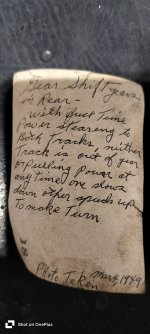 Gear Shift gears
in Rear -
with Duel Time
Power stearing to
Both Tracks, neither
Track is out of gear
or Pulling Power at
any Time one slows
down other speeds up
To make Turn
Photo Taken
1949
Shot on OnePlus